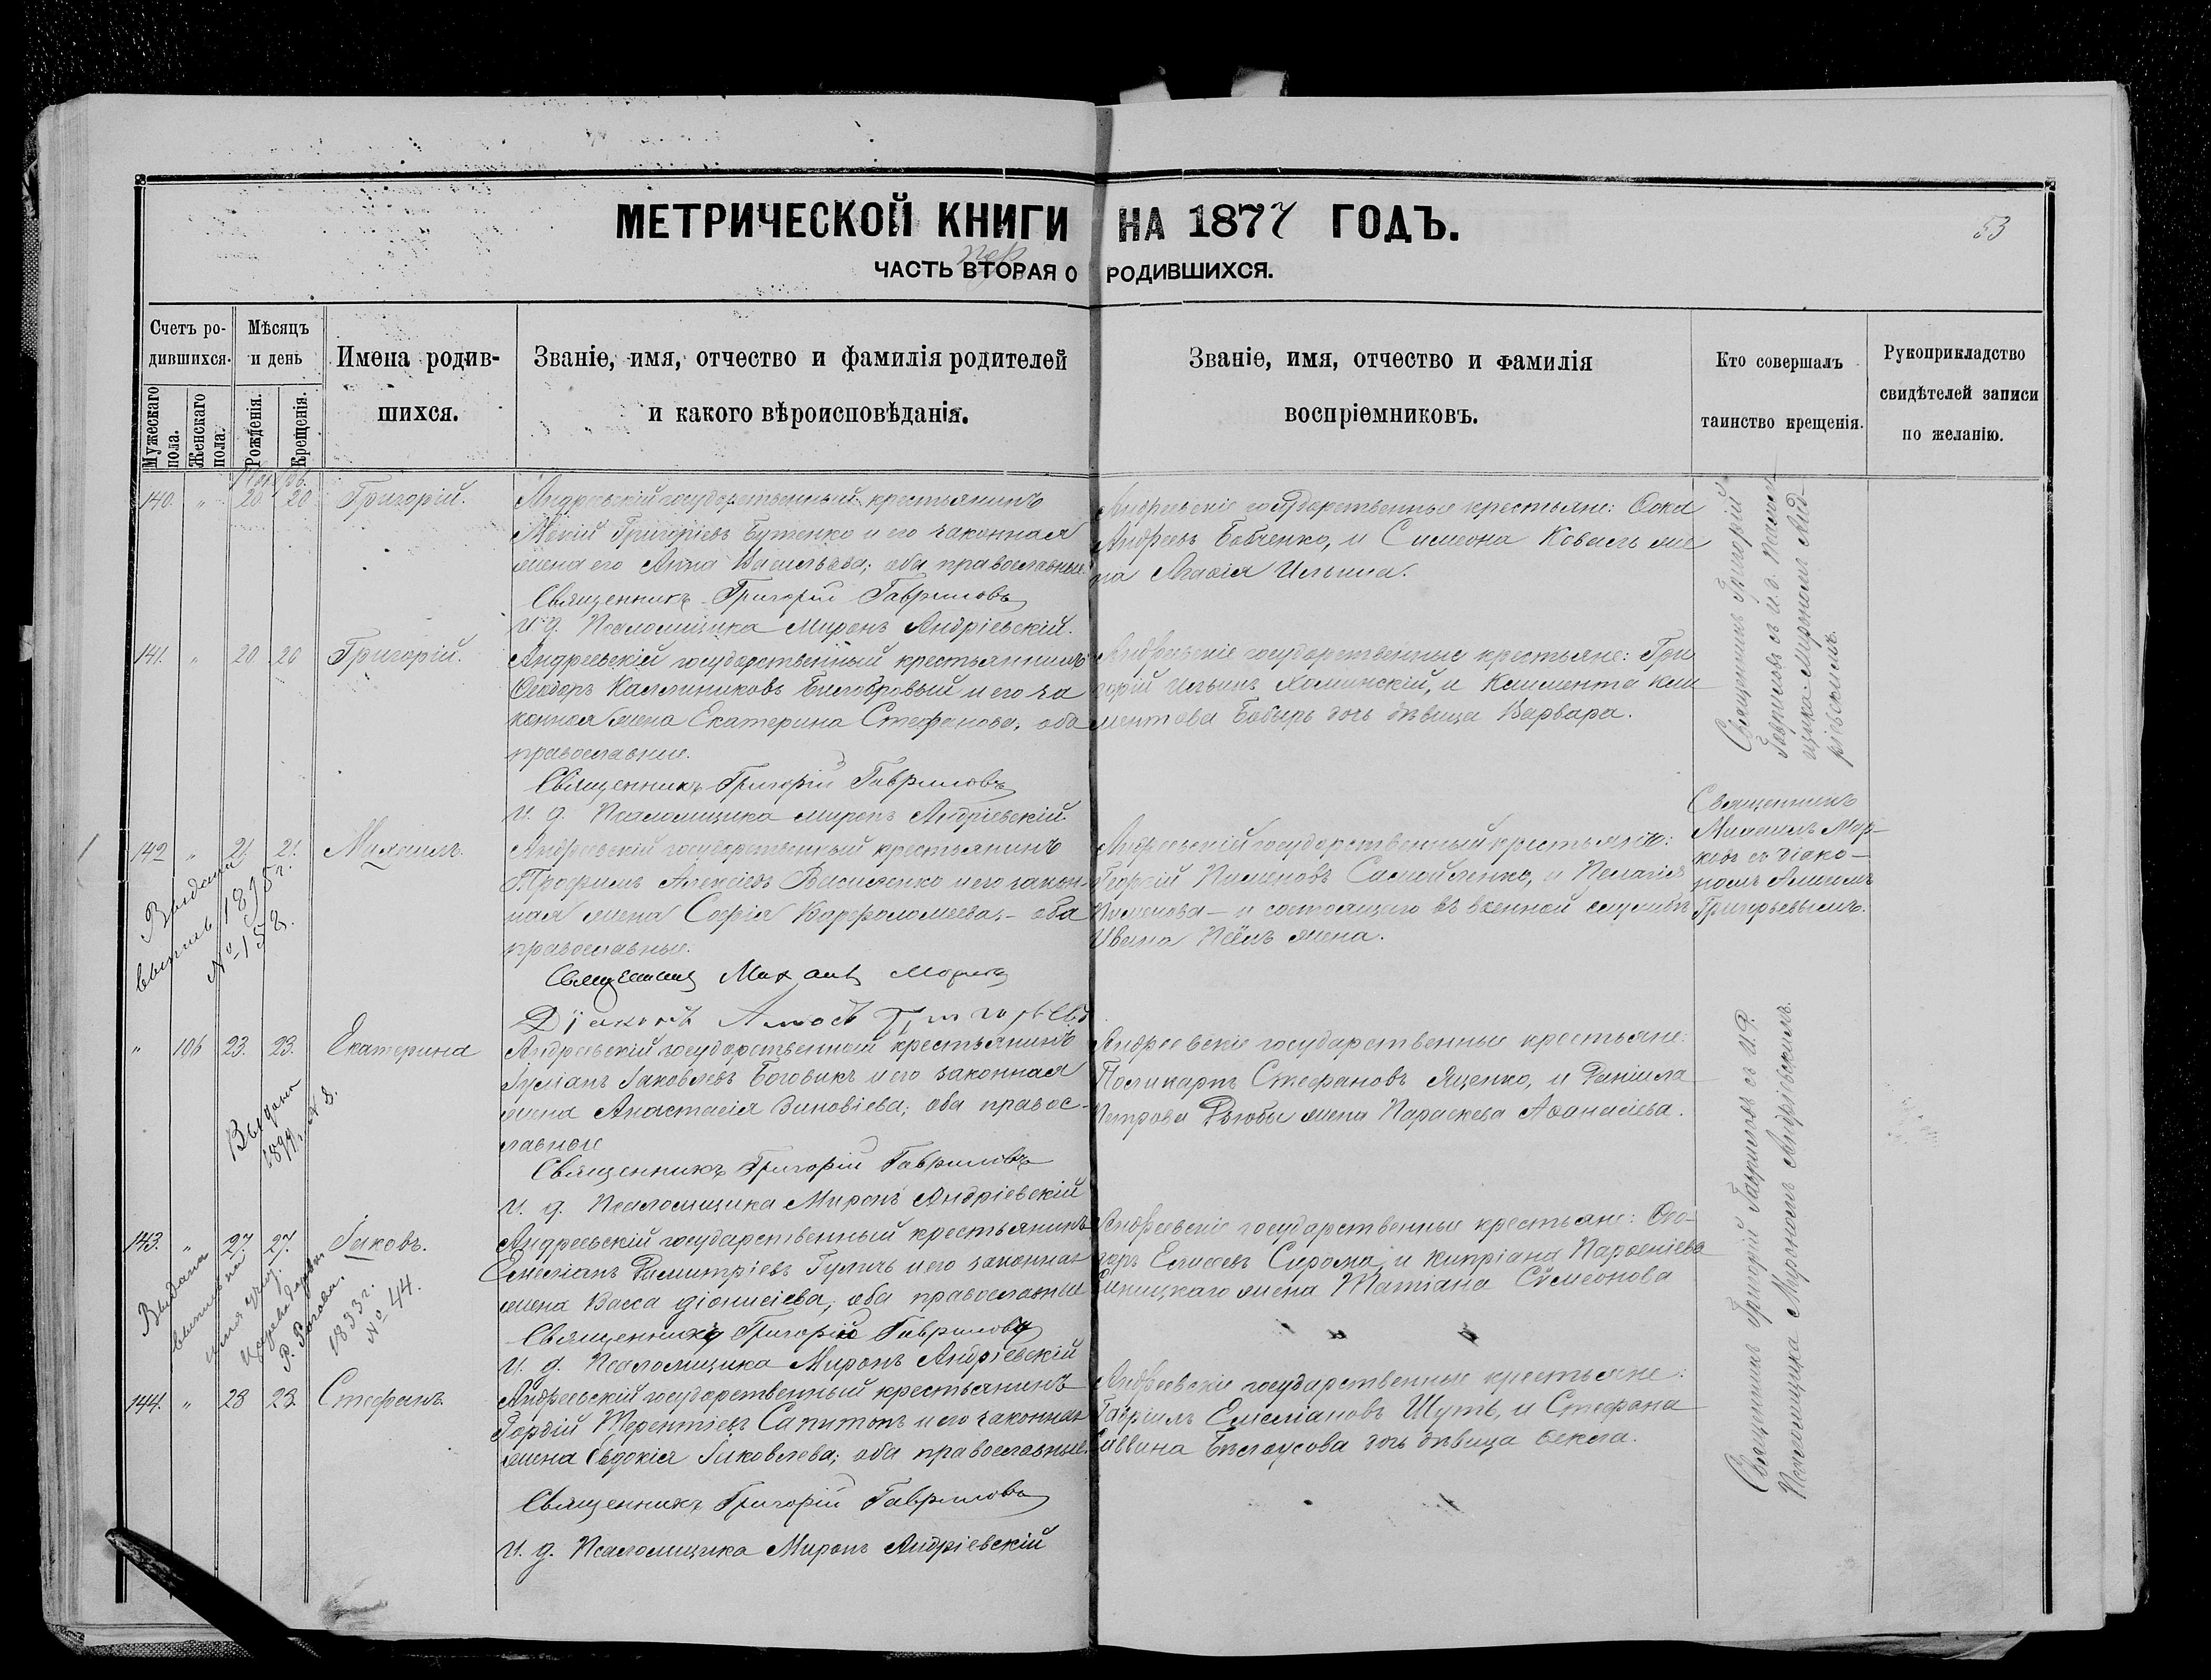 МЕТРИЧЕСКОЙ КНИГИ НА 1877 ГОДЪ.
53
ЧАСТЬ ВТОРАЯ О РОДИВШИХСЯ.
Счетъ ро-
дившихся.
Мужескаго пола.
Женскаго пола.
Мѣсяцъ
и день
Рожденія.
Крещенія.
Имена родив-
шихся.
Званіе, имя, отчество и фамилія родителей
и какого вѣроисповѣданія.
Званіе, имя, отчество и фамилія
воспріемниковъ.
Кто совершалъ
таинство крещенія.
Рукоприкладство
свидѣтелей записи
по желанію.
140. " 20 20 Григорій.
Андреевскій государственный крестьянинъ
Григоріевъ Бутенко и его законная
жена его Анна Васильева; оба православные.
Священникъ Григорій Гавриловъ
И. д. Псаломщика Миронъ Андріевскій.
Андреевскіе государственные крестьяне: Ѳока
Андреевъ Бабченко, и Симеона Коваль же
на Агафія Ильина.
Священникъ Григорій
Гавриловъ съ и. д. Псалом
щика Мирономъ Анд-
ріевскимъ.
141. " 20 20 Григорій.
Андреевскій государственный крестьянинъ
Ѳеодоръ Каллиниковъ Билобровый и его за
конная жена Екатерина Стефанова, оба
православные.
Священникъ Григорій Гавриловъ
И. д. Псаломщика Миронъ Андріевскій.
Андреевскіе государственные крестьяне: Гри
горій Ильинъ Хоминскій, и Климента Кли
ментова Бабырь дочь дѣвица Варвара.
142 " 21 21. Михаилъ.
Андреевскій государственный крестьянинъ
Трофимъ Алексіевъ Василенко и его закон-
ная жена Софія Варфоломеева, - оба
православные.
Священникъ Михаилъ
Діаконъ Амосъ Григорьевъ
Андреевскій государственный крестьянинъ:
Георгій Пименовъ Самойленко, и Пелагія
Пименова - и состоящаго въ военной службѣ
Ивана жена.
Священникъ
Михаилъ Мар-
ковъ съ діако-
номъ Амосомъ
Григорьевымъ.
Выдана
выпись 1895 г.
№ 158.
" 106 23. 23. Екатерина
Андреевскій государственный крестьянинъ
Іуліанъ Іаковлевъ Боговикъ и его законная
жена Анастасія Зиновіева; оба правос-
лавные
Священникъ Григорій Гавриловъ
И. д. Псаломщика Миронъ Андріевскій
Андреевскіе государственные крестьяне:
Поликарпъ Стефановъ Яценко, и Даніила
Петрова Дзюбы жена Параскева Аѳанасіева.
Выдана
1899 г. № 8.
143. " 27. 27. Іаковъ.
Андреевскій государственный крестьянинъ
Емеліанъ Димитріевъ Гуличъ и его законная
жена Васса Діонисіева, оба православные
Священникъ Григорій Гавриловъ
И. д. Псаломщика Миронъ Андріевскій
Андреевскіе государственные крестьяне: Ѳео-
доръ Елисеевъ Сирома, и Кипріана Парѳеніева
Синицкаго жена Татіана Сѵмеонова
Священникъ Григорій Гавриловъ съ И. Д.
Псаломщика Мирономъ Андріевскимъ.
Выдана
выпись
№ 44.
144. " 28 28. Стефанъ.
Андреевскій государственный крестьянинъ
Гордій Терентіевъ Сапитонъ и его законная
жена Евдокія Іаковлева; оба православные.
Священникъ Григорій Гавриловъ
И. д. Псаломщика Миронъ Андріевскій
Андреевскіе государственные крестьяне:
Гавріилъ Емеліановъ Шуть, и Стефана
Саввина Бѣлоусова дочь дѣвица Ѳекла.